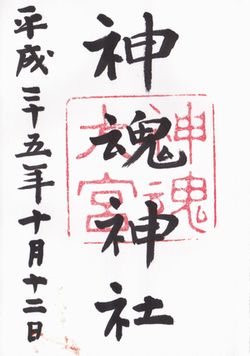 神魂神社
神魂
大宮
平成二十五年十月十二日